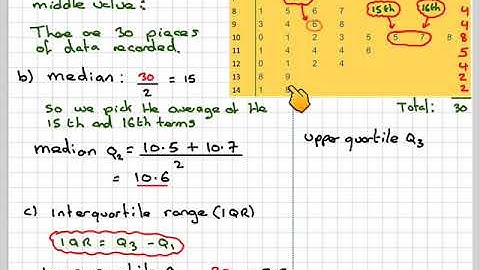 middle value:
There are 30 pieces
of data recorded.
b) median: 30/2 = 15
So we pick the average of the
15 th and 16th terms
median Q2 = 10.5 + 10.7 / 2
= 10.6
c) Interquartile range (IQR)
IQR = Q3 - Q1
15th 16th
8 1 5 6 7 4
9 3 4 6 8 4
10 0 1 2 3 5 5 7 8 8
11 0 1 2 4 5
12 0 1 2 4 4
13 8 9 2
14 1 2
Total: 30
upper quartile Q3